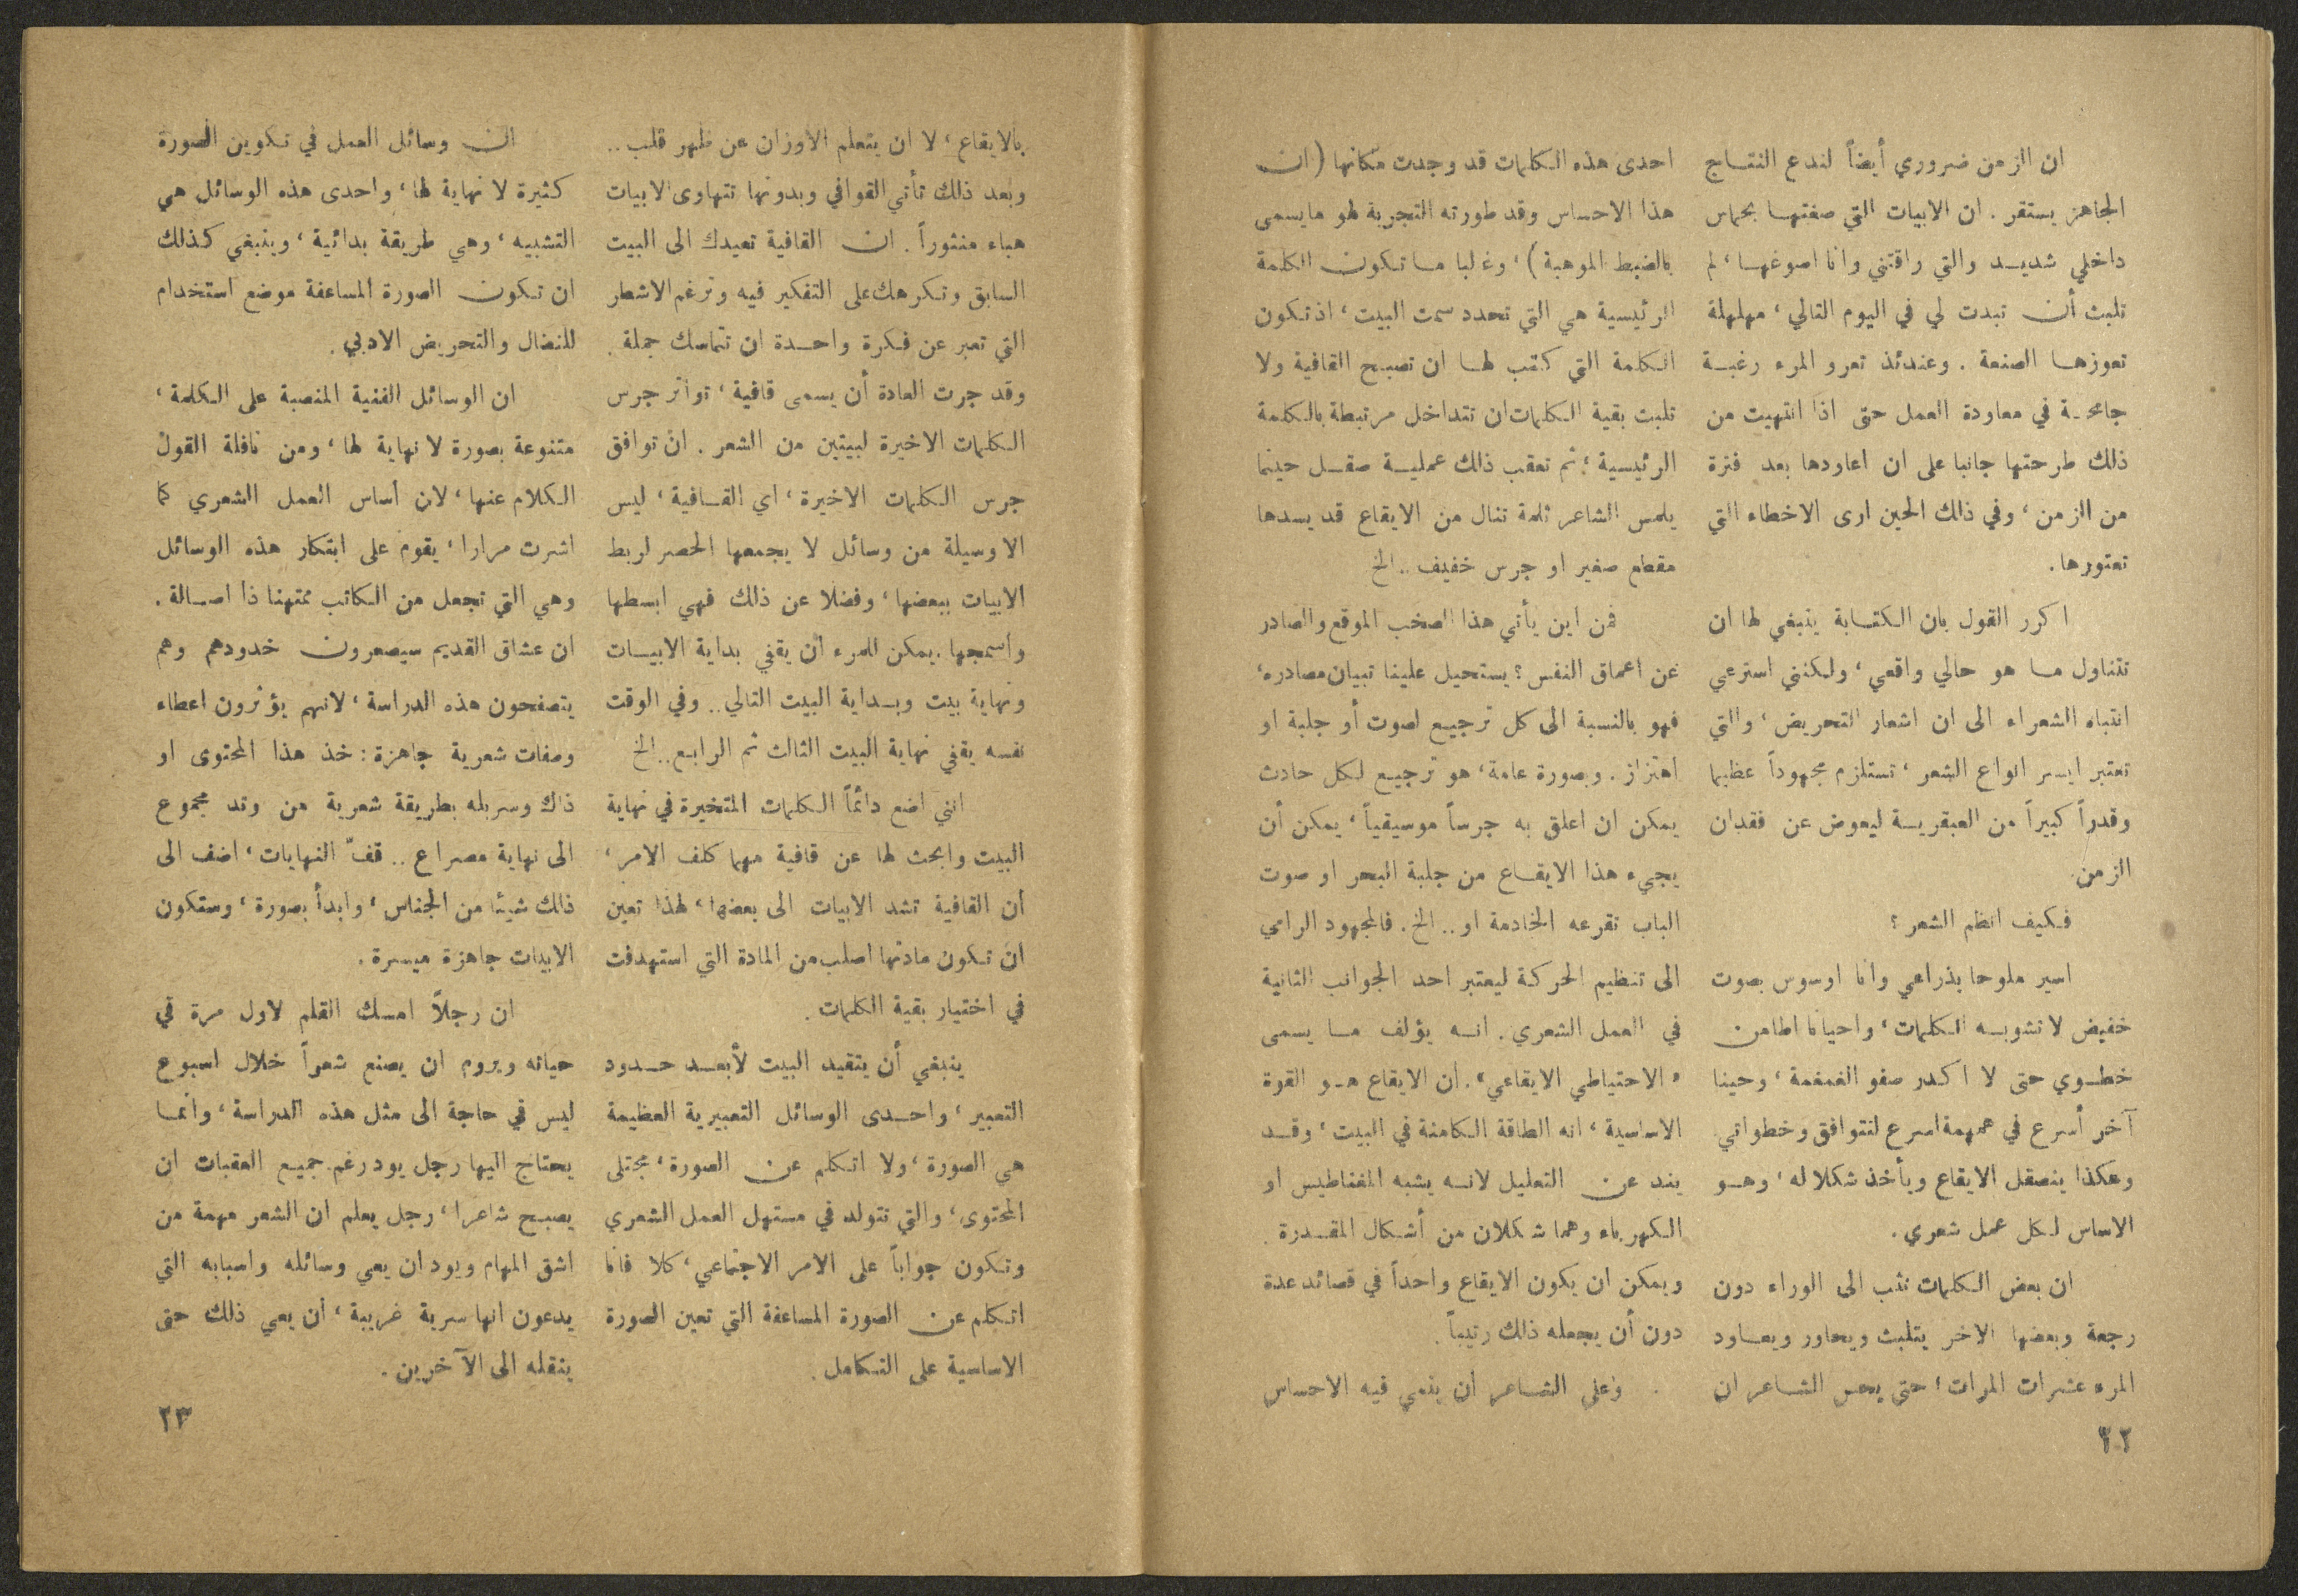 ان الزمن ضروري أيضاً لندع النتاج
الجاهز يستقر . ان الابيات التي صغتها بحماس
داخلي شديد والتي راقتني وانا اصوغها ، لم
تلبث أن تبدت لي في اليوم التالي ، مهلهلة
تعوزها الصنعة . وعندئذ تعرو المرء رغبة
جامحة في معاودة العمل حتى اذا انتهيت من
ذلك طرحتها جانبا على ان اعاودها بعد فترة
من الزمن ، وفي ذلك الحين ارى الاخطاء التي
تعتورها .
اكرر القول بان الكتابة ينبغي لها ان
تتناول ما هو حالي واقعي ، ولكنني استرعي
انتباه الشعراء الى ان اشعار التحريض ، والتي
تعتبر ايسر انواع الشعر ، تستلزم مجهوداً عظيما
وقدراً كبيراً من العبقرية ليعوض عن فقدان
الزمن .
فكيف انظم الشعر ؟
اسير ملوحا بذراعي وانا اوسوس بصوت
خفيض لا تشوبه الكلمات ، واحيانا اطامن
خطوي حتى لا اكدر صفو الغمغمة ، وحينا
آخر أسرع في همهمة اسرع لتتوافق وخطواتي
وهكذا ينصقل الايقاع ويأخذ شكلا له ، وهو
الاساس لكل عمل شعري .
ان بعض الكلمات تثب الى الوراء دون
رجعة وبعضها الاخر يتلبث ويحاور ويعاود
المرء عشرات المرات ؛ حتى يحس الشاعر ان
٢٢
احدى هذه الكلمات قد وجدت مكانها ( ان
هذا الاحساس وقد طورته التجربة لهو ما يسمى
بالضبط الموهبة ) ، وغالبا ما تكون الكلمة
الرئيسية هي التي تحدد سمت البيت ، اذ تكون
الكلمة التي كتب لها ان تصبح القافية ولا
تلبث بقية الكلمات ان تتداخل مرتبطة بالكلمة
الرئيسية ؛ ثم تعقب ذلك عملية صقل حينما
يلمس الشاعر ثلمة تنال من الايقاع قد يسدها
مقطع صغير او جرس خفيف .. الخ
فمن اين يأتي هذا الصخب الموقع والصادر
عن اعماق النفس ؟ يستحيل علينا تبيان مصادره ،
فهو بالنسبة الى كل ترجيع لصوت أو جلبة او
اهتزاز . وبصورة عامة ، هو ترجيع لكل حادث
يمكن ان اعلق به جرساً موسيقياً ، يمكن أن
يجيء هذا الايقاع من جلبة البحر او صوت
الباب تقرعه الخادمة او .. الخ . فالمجهود الرامي
الى تنظيم الحركة ليعتبر احد الجوانب الثانية
في العمل الشعري . انه يؤلف ما يسمى
« الاحتياطي الايقاعي » . ان الايقاع هو القوة
الاساسية ، انه الطاقة الكامنة في البيت ، وقد
يند عن التعليل لانه يشبه المغناطيس او
الكهرباء وهما شكلان من أشكال المقدرة .
ويمكن ان يكون الايقاع واحداً في قصائد عدة
دون أن يجعله ذلك رتيباً .
وعلى الشاعر أن ينمي فيه الاحساس
بالايقاع ، لا ان يتعلم الاوزان عن ظهر قلب ..
وبعد ذلك تأتي القوافي وبدونها تتهاوى الابيات
هباء منثوراً . ان القافية تعيدك الى البيت
السابق وتكرهك على التفكير فيه وترغم الاشعار
التي تعبر عن فكرة واحدة ان تتماسك جملة .
وقد جرت العادة أن يسمى قافية ، تواتر جرس
الكلمات الاخيرة لبيتين من الشعر . ان توافق
جرس الكلمات الاخيرة ، اي القافية ، ليس
الا وسيلة من وسائل لا يجمعها الحصر لربط
الابيات ببعضها ، وفضلا عن ذلك فهي ابسطها
وأسمجها . يمكن للمرء أن يقفي بداية الابيات
ونهاية بيت وبداية البيت التالي .. وفي الوقت
نفسه يقفي نهاية البيت الثالث ثم الرابع .. الخ
انني اضع دائماً الكلمات المتخيرة في نهاية
البيت وابحث لها عن قافية مهما كلف الامر ،
أن القافية تشد الابيات الى بعضها ، لهذا تعين
ان تكون مادتها اصلب من المادة التي استهدفت
في اختيار بقية الكلمات .
ينبغي أن يتقيد البيت لأبعد حدود
التعبير ، واحدى الوسائل التعبيرية العظيمة
هي الصورة ، ولا اتكلم عن الصورة ، مجتلى
المحتوى ، والتي تتولد في مستهل العمل الشعري
وتكون جواباً على الامر الاجتماعي ، كلا فانا
اتكلم عن الصورة المساعفة التي تعين الصورة
الاساسية على التكامل .
ان وسائل العمل في تكوين الصورة
كثيرة لا نهاية لها ، واحدى هذه الوسائل هي
التشبيه ، وهي طريقة بدائية ، وينبغي كذلك
ان تكون الصورة المساعفة موضع استخدام
للنضال والتحريض الادبي .
ان الوسائل الفنية المنصبة على الكلمة ،
متنوعة بصورة لا نهاية لها ، ومن نافلة القول
الكلام عنها ، لان أساس العمل الشعري كما
اشرت مرارا ، يقوم على ابتكار هذه الوسائل
وهي التي تجعل من الكاتب ممتهنا ذا اصالة .
ان عشاق القديم سيصعرون خدودهم وهم
يتصفحون هذه الدراسة ، لانهم يؤثرون اعطاء
وصفات شعرية جاهزة : خذ هذا المحتوى او
ذاك وسربله بطريقة شعرية من وتد مجموع
الى نهاية مصراع .. قفّ النهايات ، اضف الى
ذلك شيئا من الجناس ، وابدأ بصورة ، وستكون
الابيات جاهزة ميسرة .
ان رجلاً امسك القلم لاول مرة في
حياته ويروم ان يصنع شعراً خلال اسبوع
ليس في حاجة الى مثل هذه الدراسة ، وانما
يحتاج اليها رجل يود رغم جميع العقبات ان
يصبح شاعرا ، رجل يعلم ان الشعر مهمة من
اشق المهام ويود ان يعي وسائله واسبابه التي
يدعون انها سرية غريبة ، أن يعي ذلك حتى
ينقله الى الآخرين .
٢٣